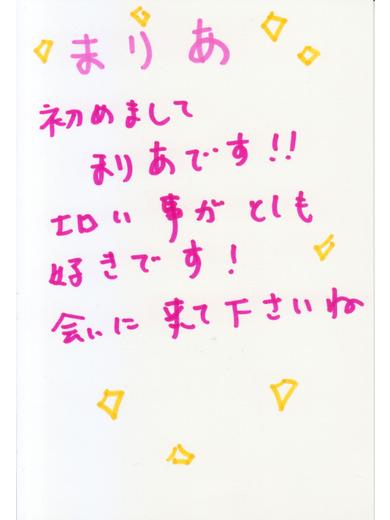 まりあ
初めまして
まりあです!!
エロい事がとても
好きです!
会いに来て下さいね